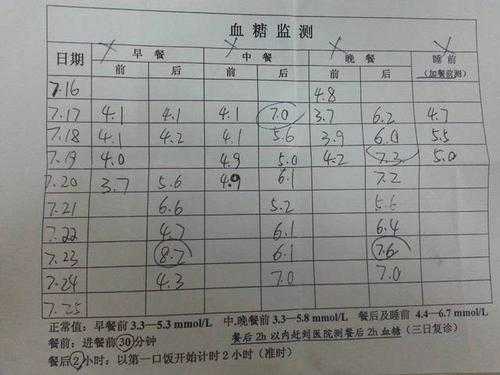 血糖监测
日期 早餐 中餐 晚餐 睡前
前 后 前 后 前 后 (加餐前测)
7.16 4.8
7.17 4.1 4.1 4.1 7.0 3.7 6.2 4.7
7.18 4.1 4.2 4.1 5.6 3.9 6.0 5.5
7.19 4.0 4.9 5.0 4.2 7.3 5.0
7.20 3.7 5.6 4.9 6.1 7.2
7.21 6.6 5.2 5.6
7.22 4.7 6.1 6.4
7.23 8.2 6.1 7.6
7.24 4.3 7.0 7.0
7.25
正常值:早餐前 3.3—5.3 mmol/L 中.晚餐前 3.3—5.8 mmol/L 餐后及睡前 4.4—6.7 mmol/L
餐前:进餐前30分钟 餐后 2h 以内赶到医院测餐后 2h 血糖(三日复诊)
餐后2小时:以第一口饭开始计时 2 小时(准时)